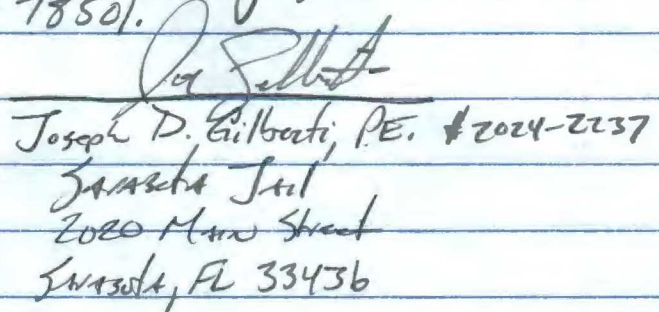 78501.
Joseph D. Gilberti, P.E. #2024-2237
Sarasota Jail
2020 Main Street
Sarasota, FL 33436